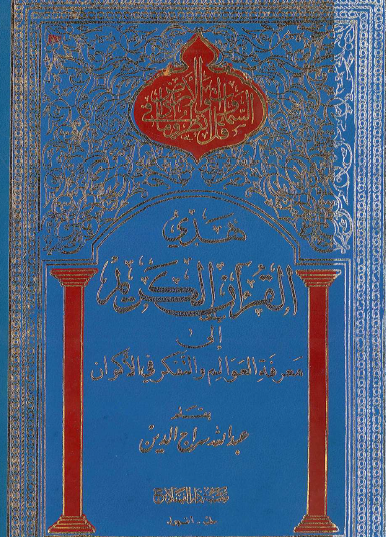 قل انظروا ماذا في السموات والأرض
هدي
القرآن الكريم
إلى
معرفة العوالم والتفكر في الأكوان
بقلم
عبد الله سراج الدين